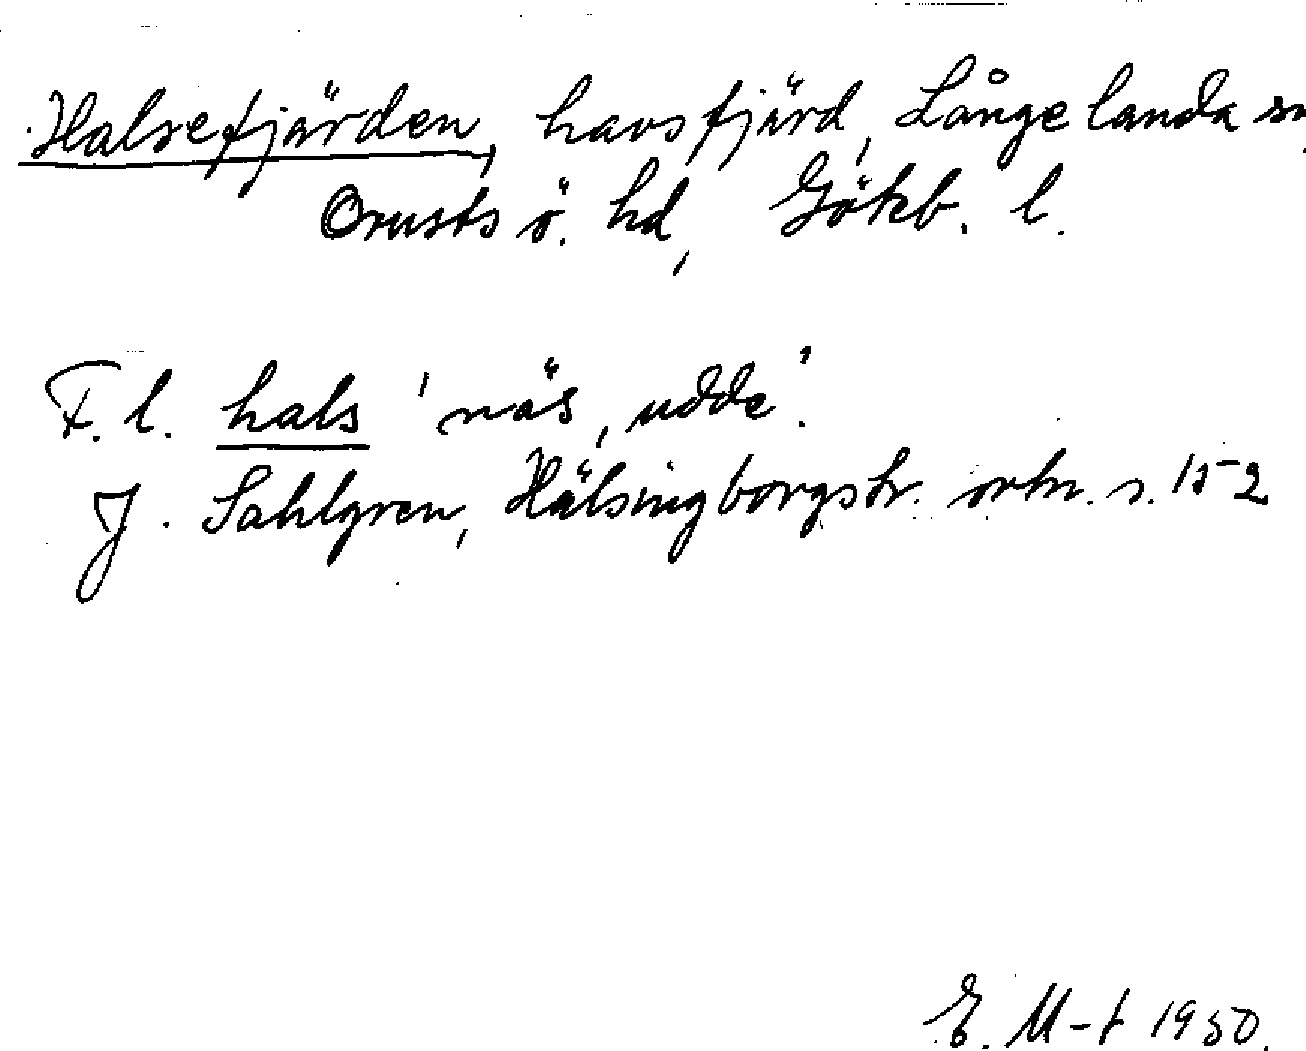 Halsefjärden, havsfjärd, Långelanda sn,
Orusts ö. hd, Göteb. l.
F.l. hals 'näs, udde'.
J. Sahlgren, Hälsingborgstr. ortn. s. 152
E. M-t 1950.